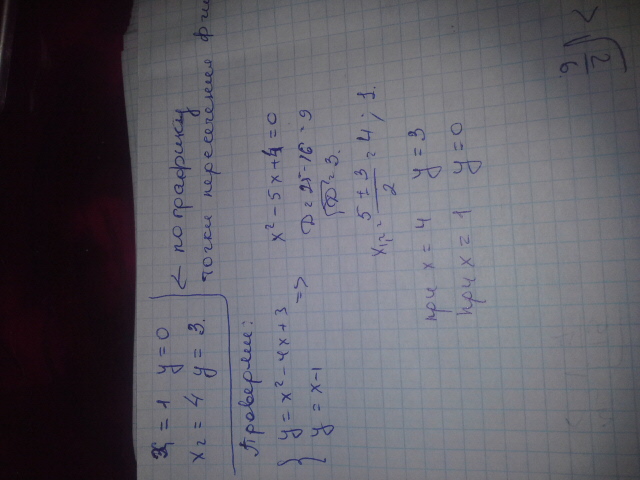 x₁ = 1 y = 0 ← по графику
x₂ = 4 y = 3. точки пересечения
Проверяем:
{ y = x² - 4x + 3
y = x - 1
=>
x² - 5x + 4 = 0
D = 25 - 16 = 9
√D = 3.
x₁,₂ = (5 ± 3)/2 = 4; 1.
при x = 4 y = 3
при x = 1 y = 0